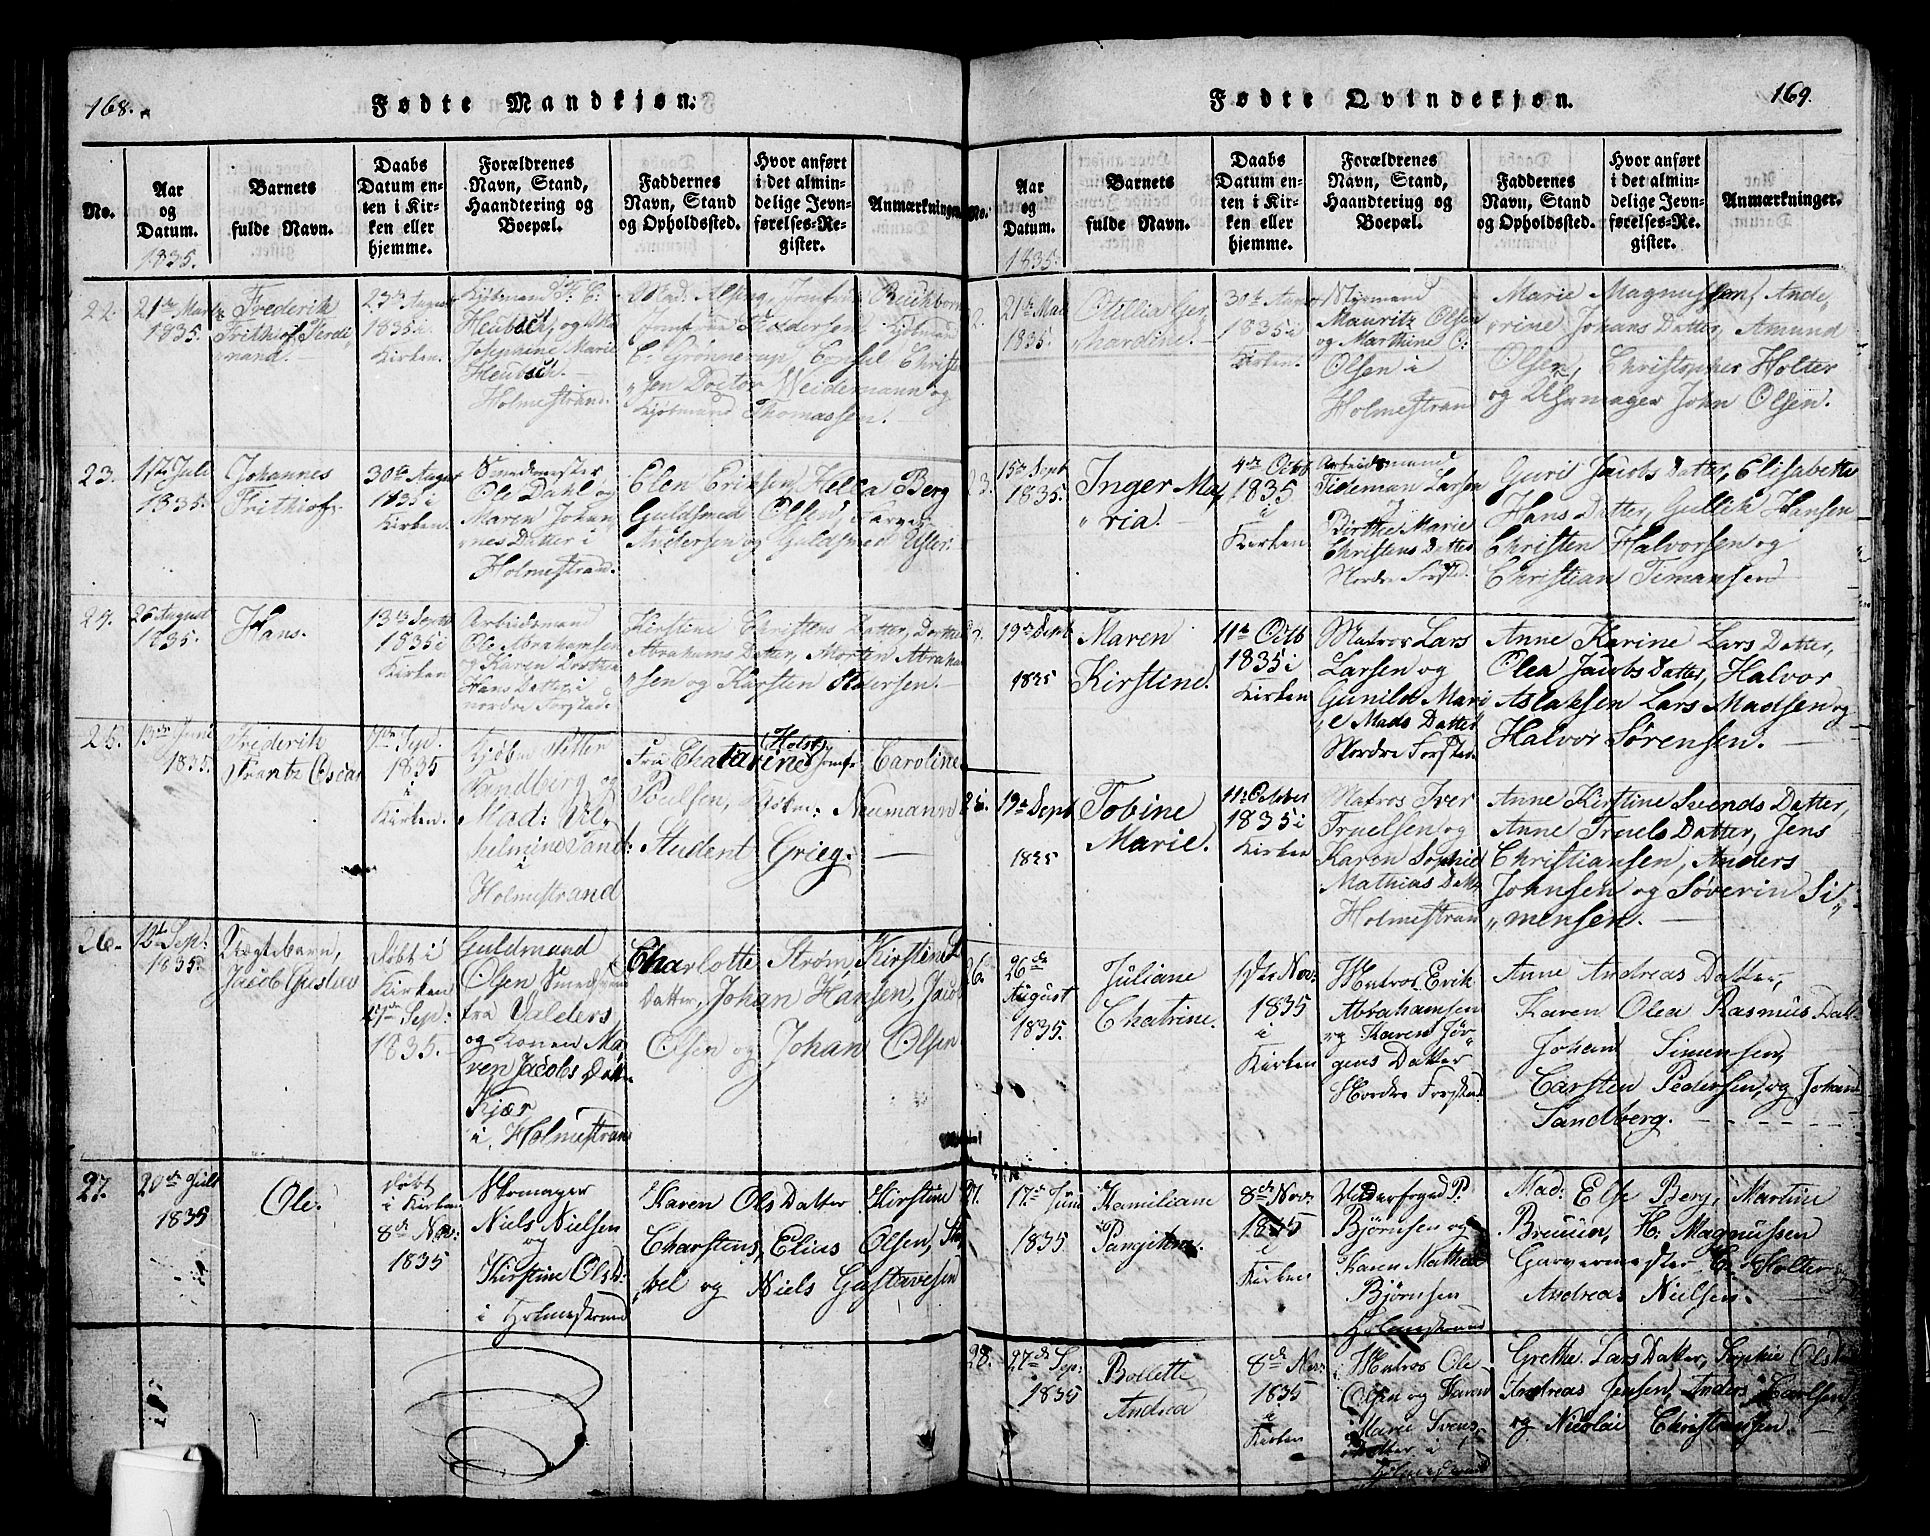 168.
Fødte Mandkjøn.
No.
Aar
og
Datum.
1835.
Barnets
fulde Navn.
Daabs
Datum en-
ten i Kir-
ken eller
hjemme.
Forældrenes
Navn, Stand,
Haandtering og
Boepæl.
Faddernes
Navn, Stand
og Opholdssted.
Hvor anført
i det almin-
delige Jevn-
førelses-Re-
gister.
Anmærkninger
22.
1835.
Frederik
Frithiof Ferdi
nand.
1835 i
Kirken.
Kjøbmand
Heubsch, og
Josephine Marie
Heubsch.
Holmestrand.
Mad: Alsing, Jomfrue
Jomfrue
Doctor Weidemann og
Kjøbmand Thomassen.
23.
17de Juli
1835.
Johannes
Frithiof
30te August
1835 i
Kirken.
Smedmester
Ole Dahl og
Maren Johan
nes Datter i
Holmestrand.
Elen Eriksen Hella Berg
Guldsmed Olsen, Farver
Andersen og Guldsmed
24.
26 August
1835.
Hans.
13de Septb
1835 i
Kirken
Arbeidsmand
Ole Abrahamsen
og Karen Dorthea
Hans Datter i
nordre Forstad
Kirstine Christens Datter, Dorthea
Abrahams Datter, Morten Abraham
sen og Karsten Pedersen.
25.
13de Juni
1835.
Frederik
Frantz Oscar
1835
i
Kirken.
Sandberg og
Mad: Vil-
helmine Sand
i
Holmestrand
Fru Chatarine (Holst) Jomfr Caroline
Poulsen, Kjøbm: Neumann
Student Grieg. —
26.
12te Sep:
1835.
Uægtebarn,
Jacob Gustav
Døbt i
Kirken
27de Sep:
1835.
Guldmand
Olsen Smedsvend
fra Valders
og Konen Ma
ren Jacobs Datt
Kjær
i, Holmestrand
Charlotte Strøm, Kirstine
Datter, Johan Hansen, Jacob
Olsen og Johan Olsen
27.
20de Juli
1835
Ole.
Døbt
i Kirken
8de Nov:
1835
Skomager
Niels Nielsen
og
Kirstine Ols D:
i Holmestrand
Karen Ols Datter Kirstine
Charstens, Elias Olsen,
og Niels Gustavesen
169.
Fødte Qvindekjøn.
No.
Aar
og
Datum.
1835.
Barnets
fulde Navn.
Daabs
Datum en-
ten i Kir-
ken eller
hjemme.
Forældrenes
Navn, Stand,
Haandteriug og
Boepæl.
Faddernes
Navn, Stand
og Opholdssted.
Hvor anført
i det almin-
delige Jevn-
førelses-Re-
gister.
Anmærkninger.
2.
21de Mai
1835.
Ottilia Ger
hardine.
1835 i
Kirken.
Styrmand
Mauritz Olsen
og Marthine O.
Olsen i
Holmestrand
Marie Magnussen, Ande
rine Johans Datter, Amund
Olsen, Christopher Holter
og Uhrmager John Olsen.
23.
15de Sept
1835.
Inger Ma
ria. —
4de Octb
1835
i
Kirken
Arbeidsmand
Tideman Larsen
og
Birthe Marie
Christens Datter
Nordre Forstad.
Guri Jacobs Datter, Elisabeth
Hans Datter, Gullik Hansen
Christen Halvorsen og
Christian Timansen
19de Sept
1835
Maren
Kirstine.
11te Octb
1835 i
Kirken
Matros Lars
Larsen og
Gunild Mari
e Mads Datter
Nordre Forstad.
Anne Karine Lars Datter,
Olea Jacobs Datter, Halvor
Aslaksen Lars Madsen og
Halvor Sørensen. —
25.
19de Sept
1835
Tobine
Marie.
11te October
1835 i
Kirken
Matros Iver
Truelsen og
Karen Sophie
Mathias Datt
Holmestrand
Anne Kirstine Svends Datter,
Anne Truels Datter, Jens
Christiansen, Anders
Johnsen og Søverin Si
mensen. —
26.
26de
August
1835.
Juliane
Chatrine.
1ste Nov:
1835
i
Kirken
Matros Erik
Abrahamsen
og Karen Jør
gens Datter
Nordre Forstad.
Anne Andreas Datter,
Karen Olea Rasmus Datt
Johan Simensen,
Carsten Pedersen, og Johan
Sandberg.
27.
17de Juni
1835.
8de Nov:
1835
i
Kirken
P.
Bjørnsen og
Karen Mathea
Bjørnsen
Holmestrand
Mad: Else Berg, Martine
Breuun, H. Magnussen
Garvermester C. Holter og
Andreas Nielsen. —
28.
27de Sep:
1835
Bollette
Andrea
8de Nov:
1835
i
Kirken
Matros Ole
Olsen og Karen
Marie Svens
Datter i
Holmestrand
Grethe Lars Datter, Sophie Ols D
Andreas Jensen, Anders Carlsen
og Nicolai Christiansen.